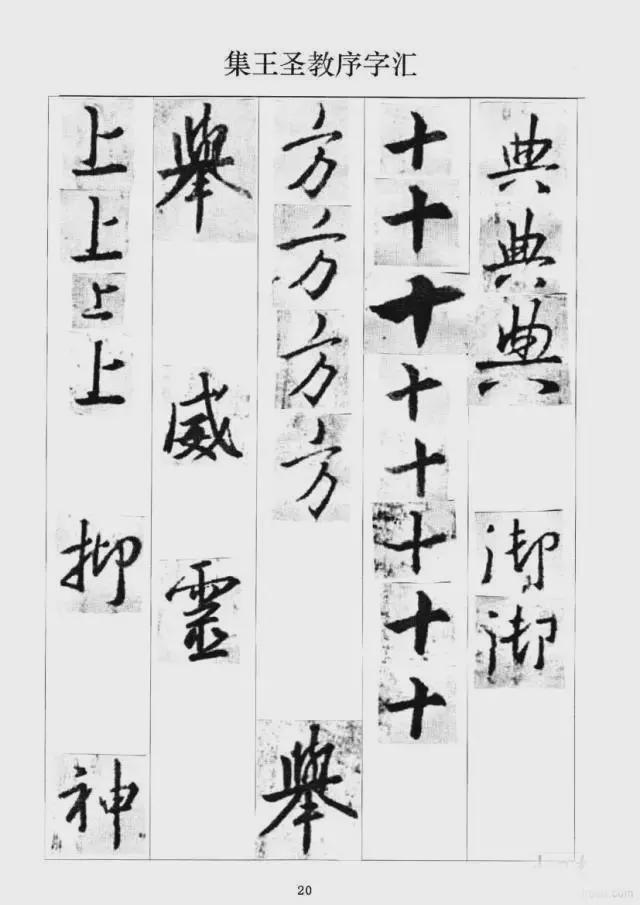 集王圣教序字汇
典典典御御
十十十十十十十十
方方方方舉
舉威靈
上上上上抑神
20